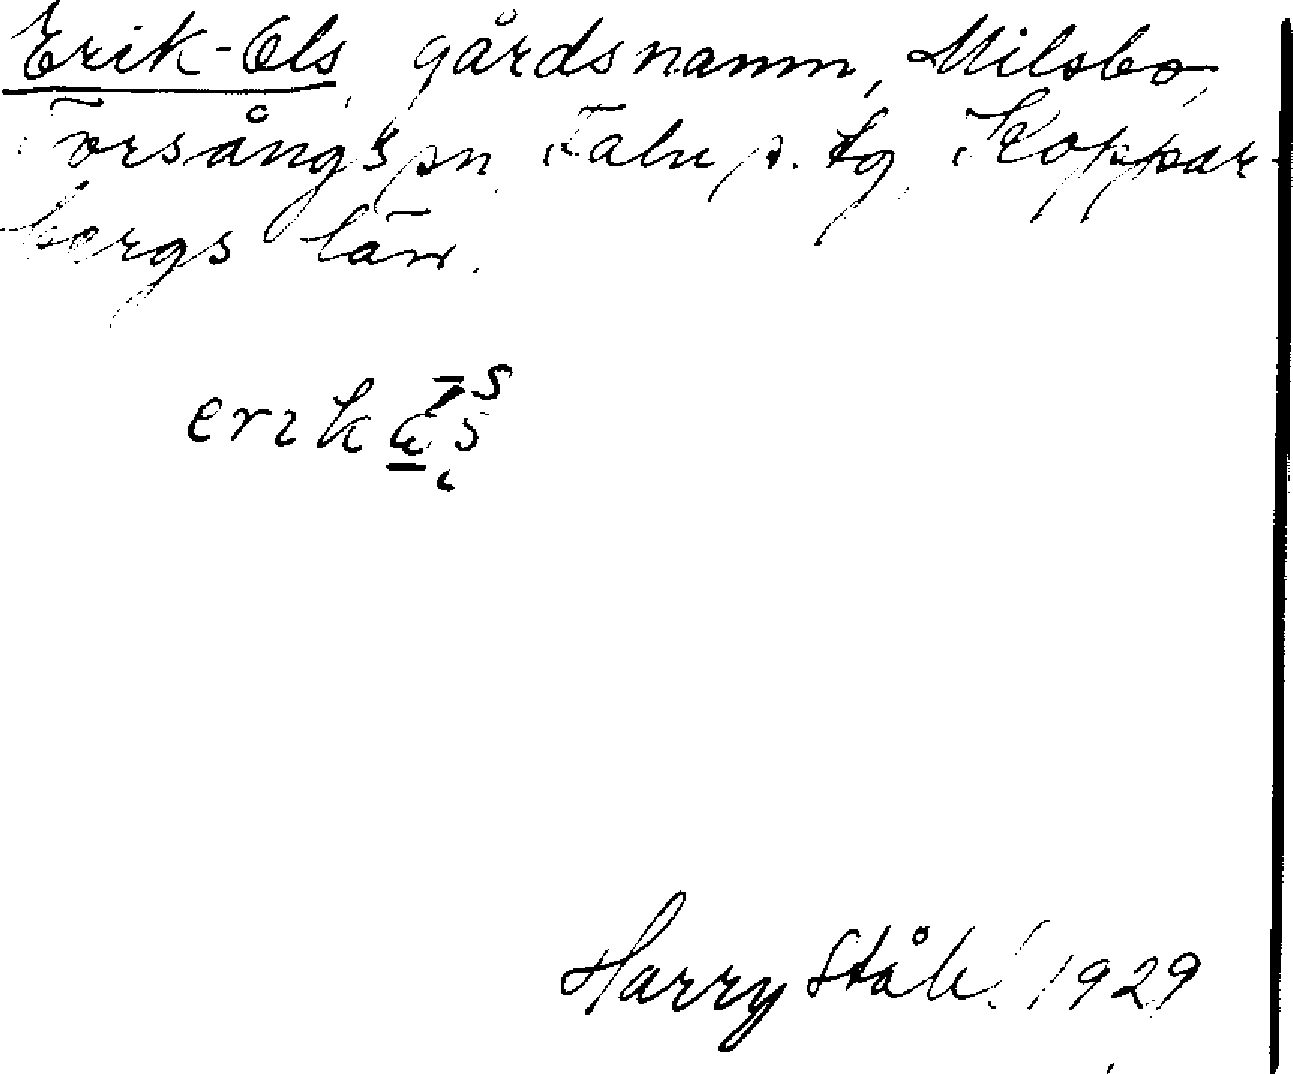 Erik-Ols, gårdsnamn, Milsbo,
Torsångs sn, Falu s. tg, Koppar-
bergs län.
erik
Harry Ståhl 1929